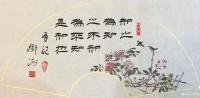 知之
為知
之不知
為不知
是知也